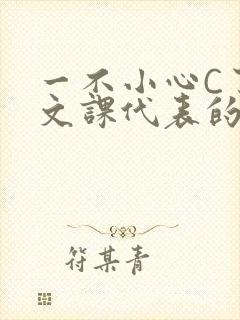 一不小心C
文課代表的
符某青